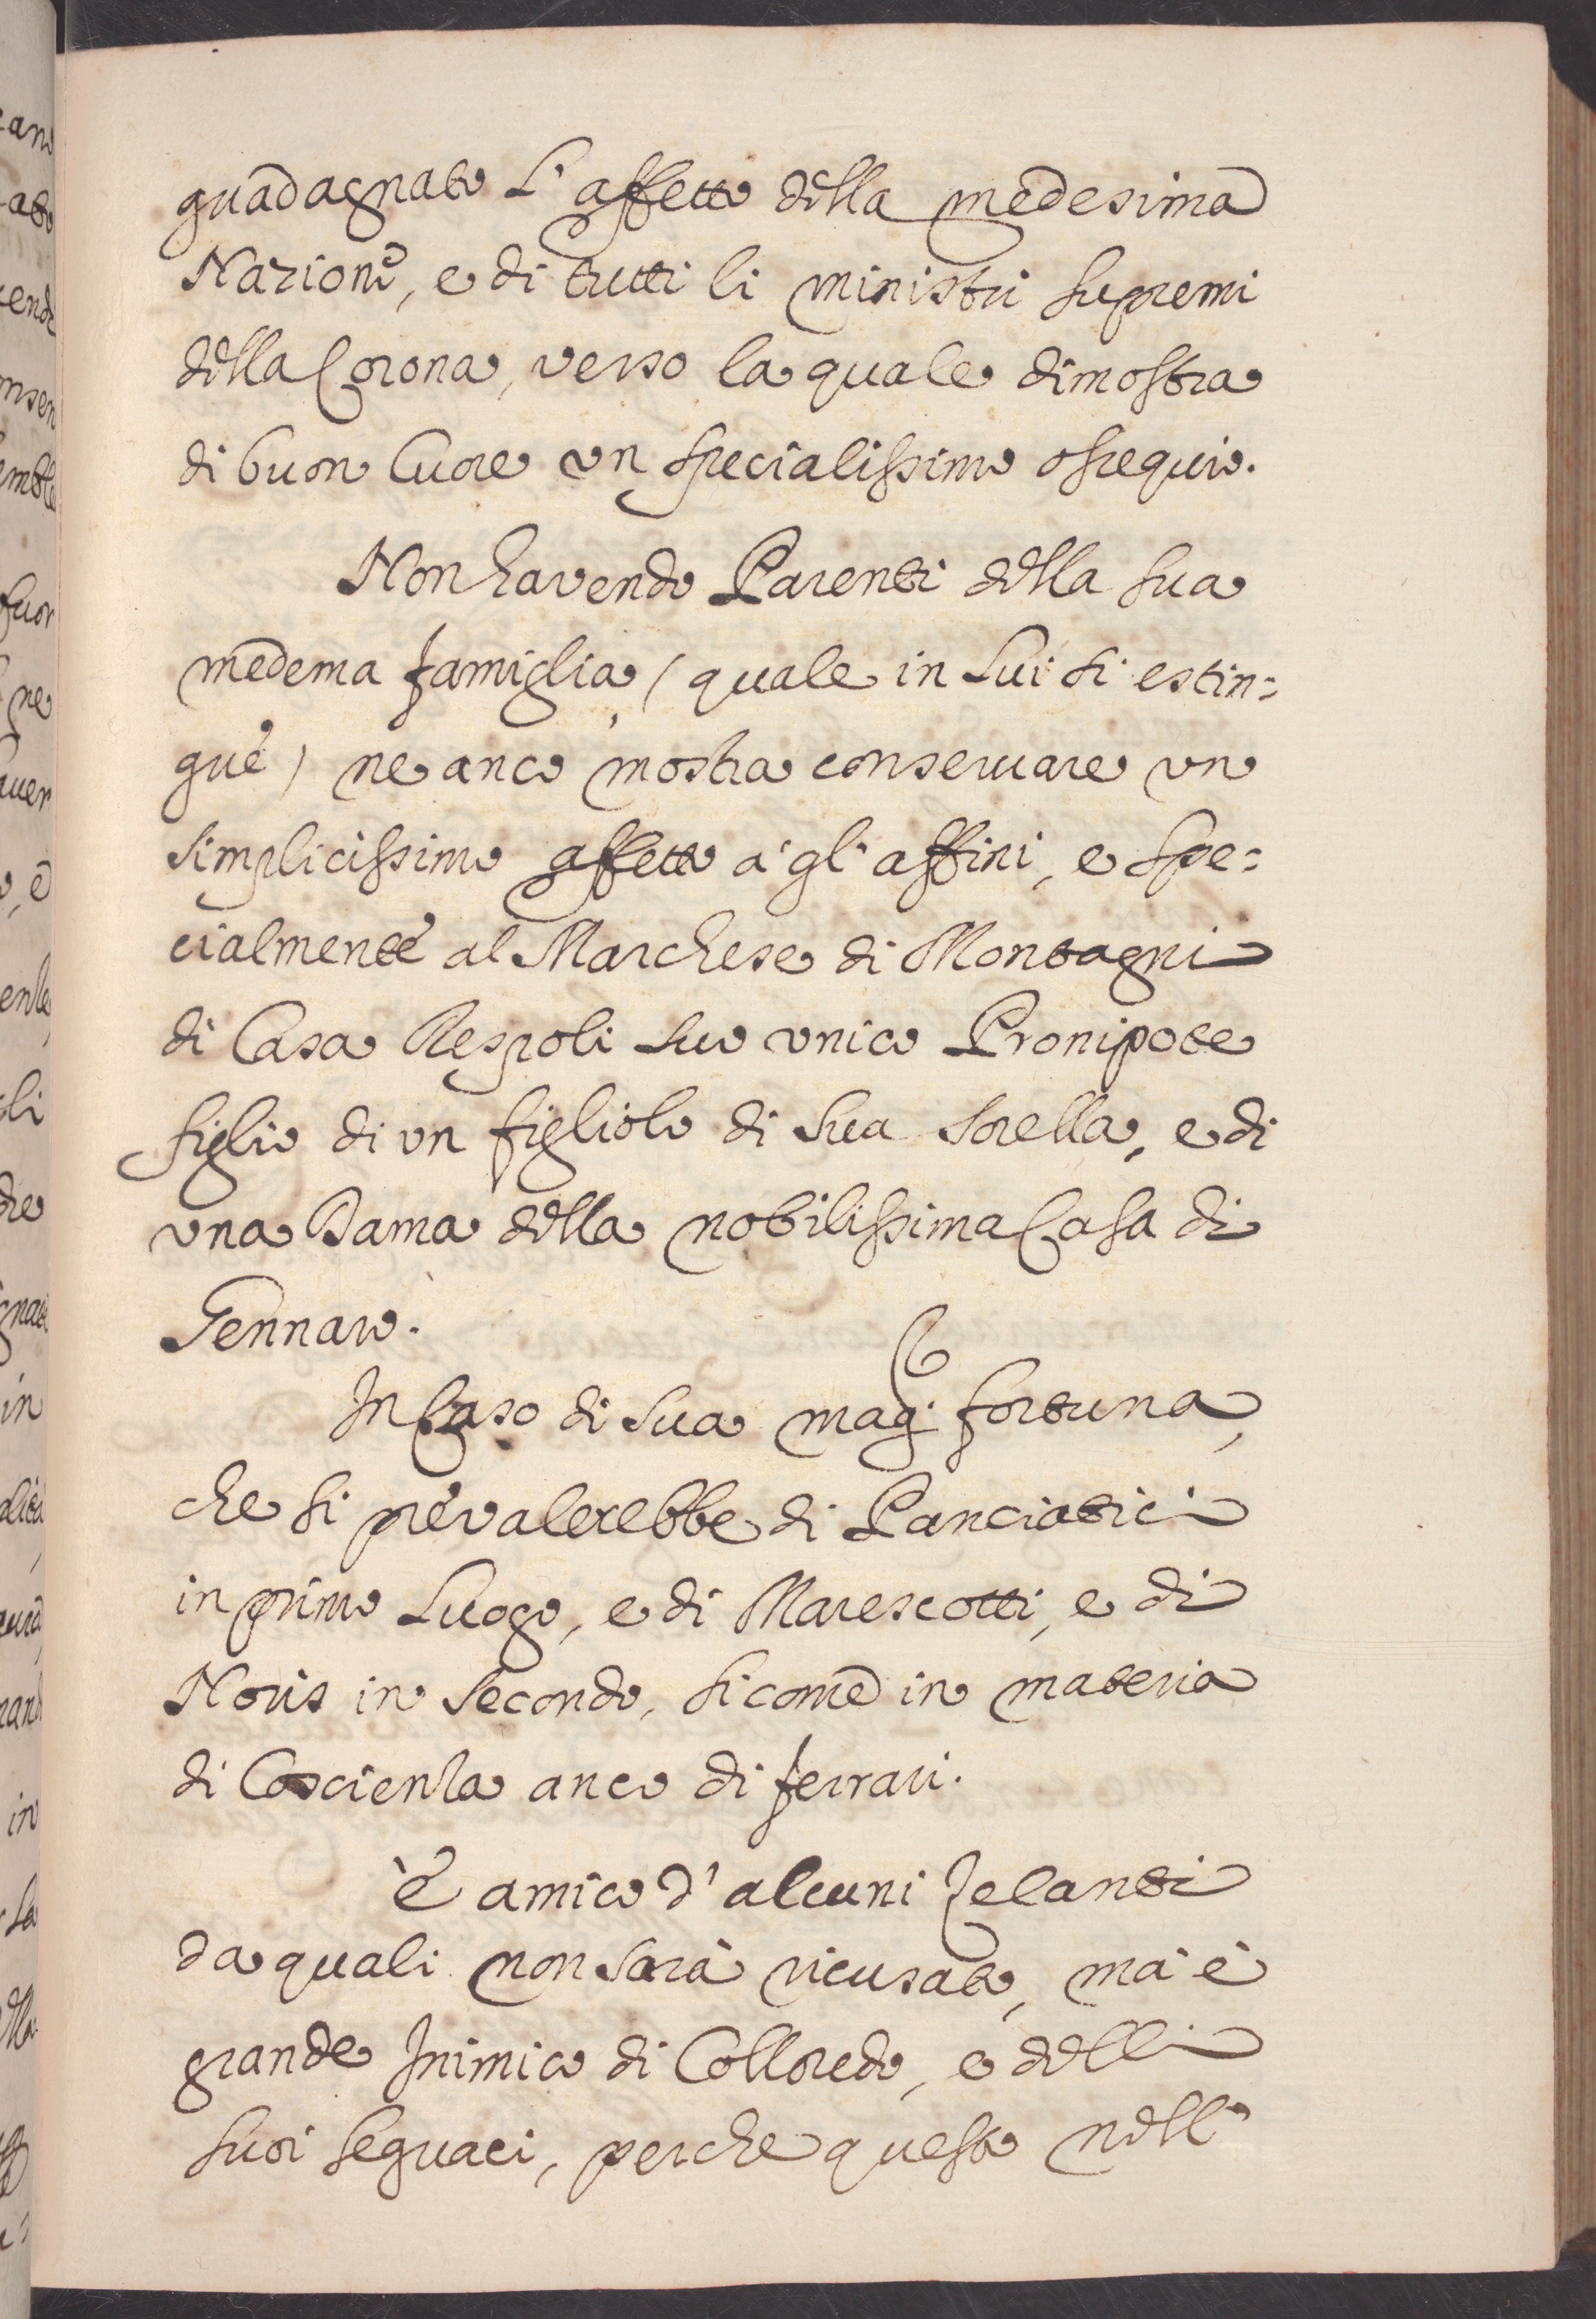 guadagnato L'affetto della medesima
Nazione, e di tutti li ministri supremi
della Corona, verso la quale dimostra
di buon Cuore vn specialissimo ossequio.
Non havendo Parenti della sua
medema famiglia (quale in Lui si estin=
gue) ne anco mostra conseruare vn
simplicissimo affetto a' gl'affini, e spe=
cialmente al Marchese di Montagni
di Casa Respoli suo vnico Pronipote
figlio di vn figliolo di sua sorella, e di
vna Dama della nobilissima Casa di
Gennaro.
In Caso di sua mag. fortuna,
che si prevalerebbe di Panciatici
in primo Luogo, e di Marescotti, e di
Noris in secondo, si come in materia
di Coscienza anco di ferrari.
È amico d'alcuni Zelanti
da quali non sarà ricusato, mà è
grande Inimico di Colloredo, e delli
suoi seguaci, perche questo nell'